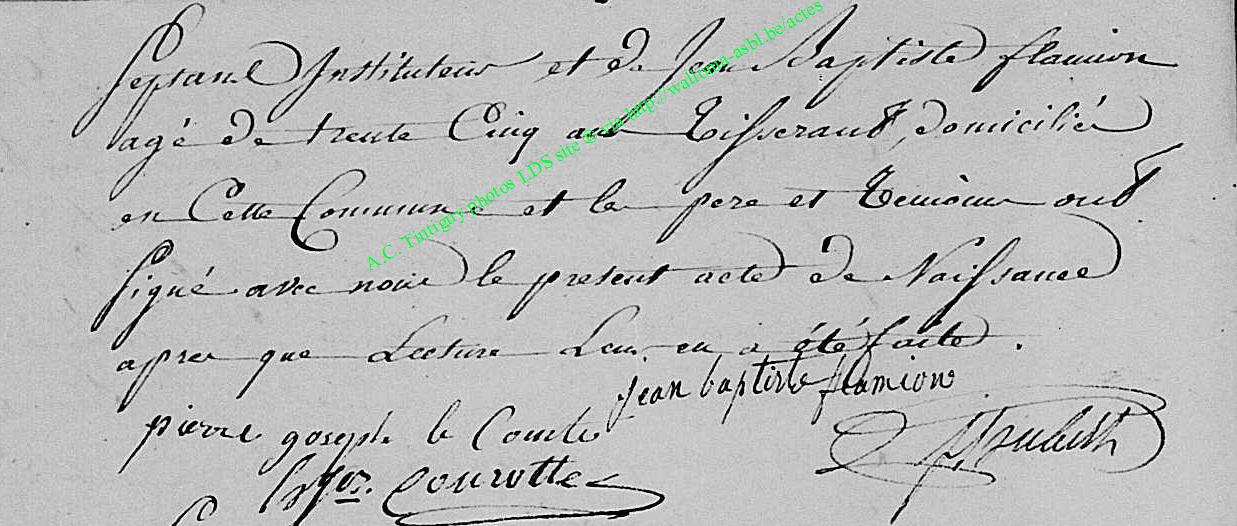 Septans Instituteur et de Jean Baptiste flamion
agé de trente Cinq ans Tisserant, domiciliés
en Cette Commune et les pere et Temoins ont
Signé avec nous le present acte de Naissance
apres que Lecture Leur en a été faite.
jean baptiste flamion
pierre joseph le Comte
Courotte
A.C. Tintigny photos LDS site Geria http://wallonia-asbl.be/actes